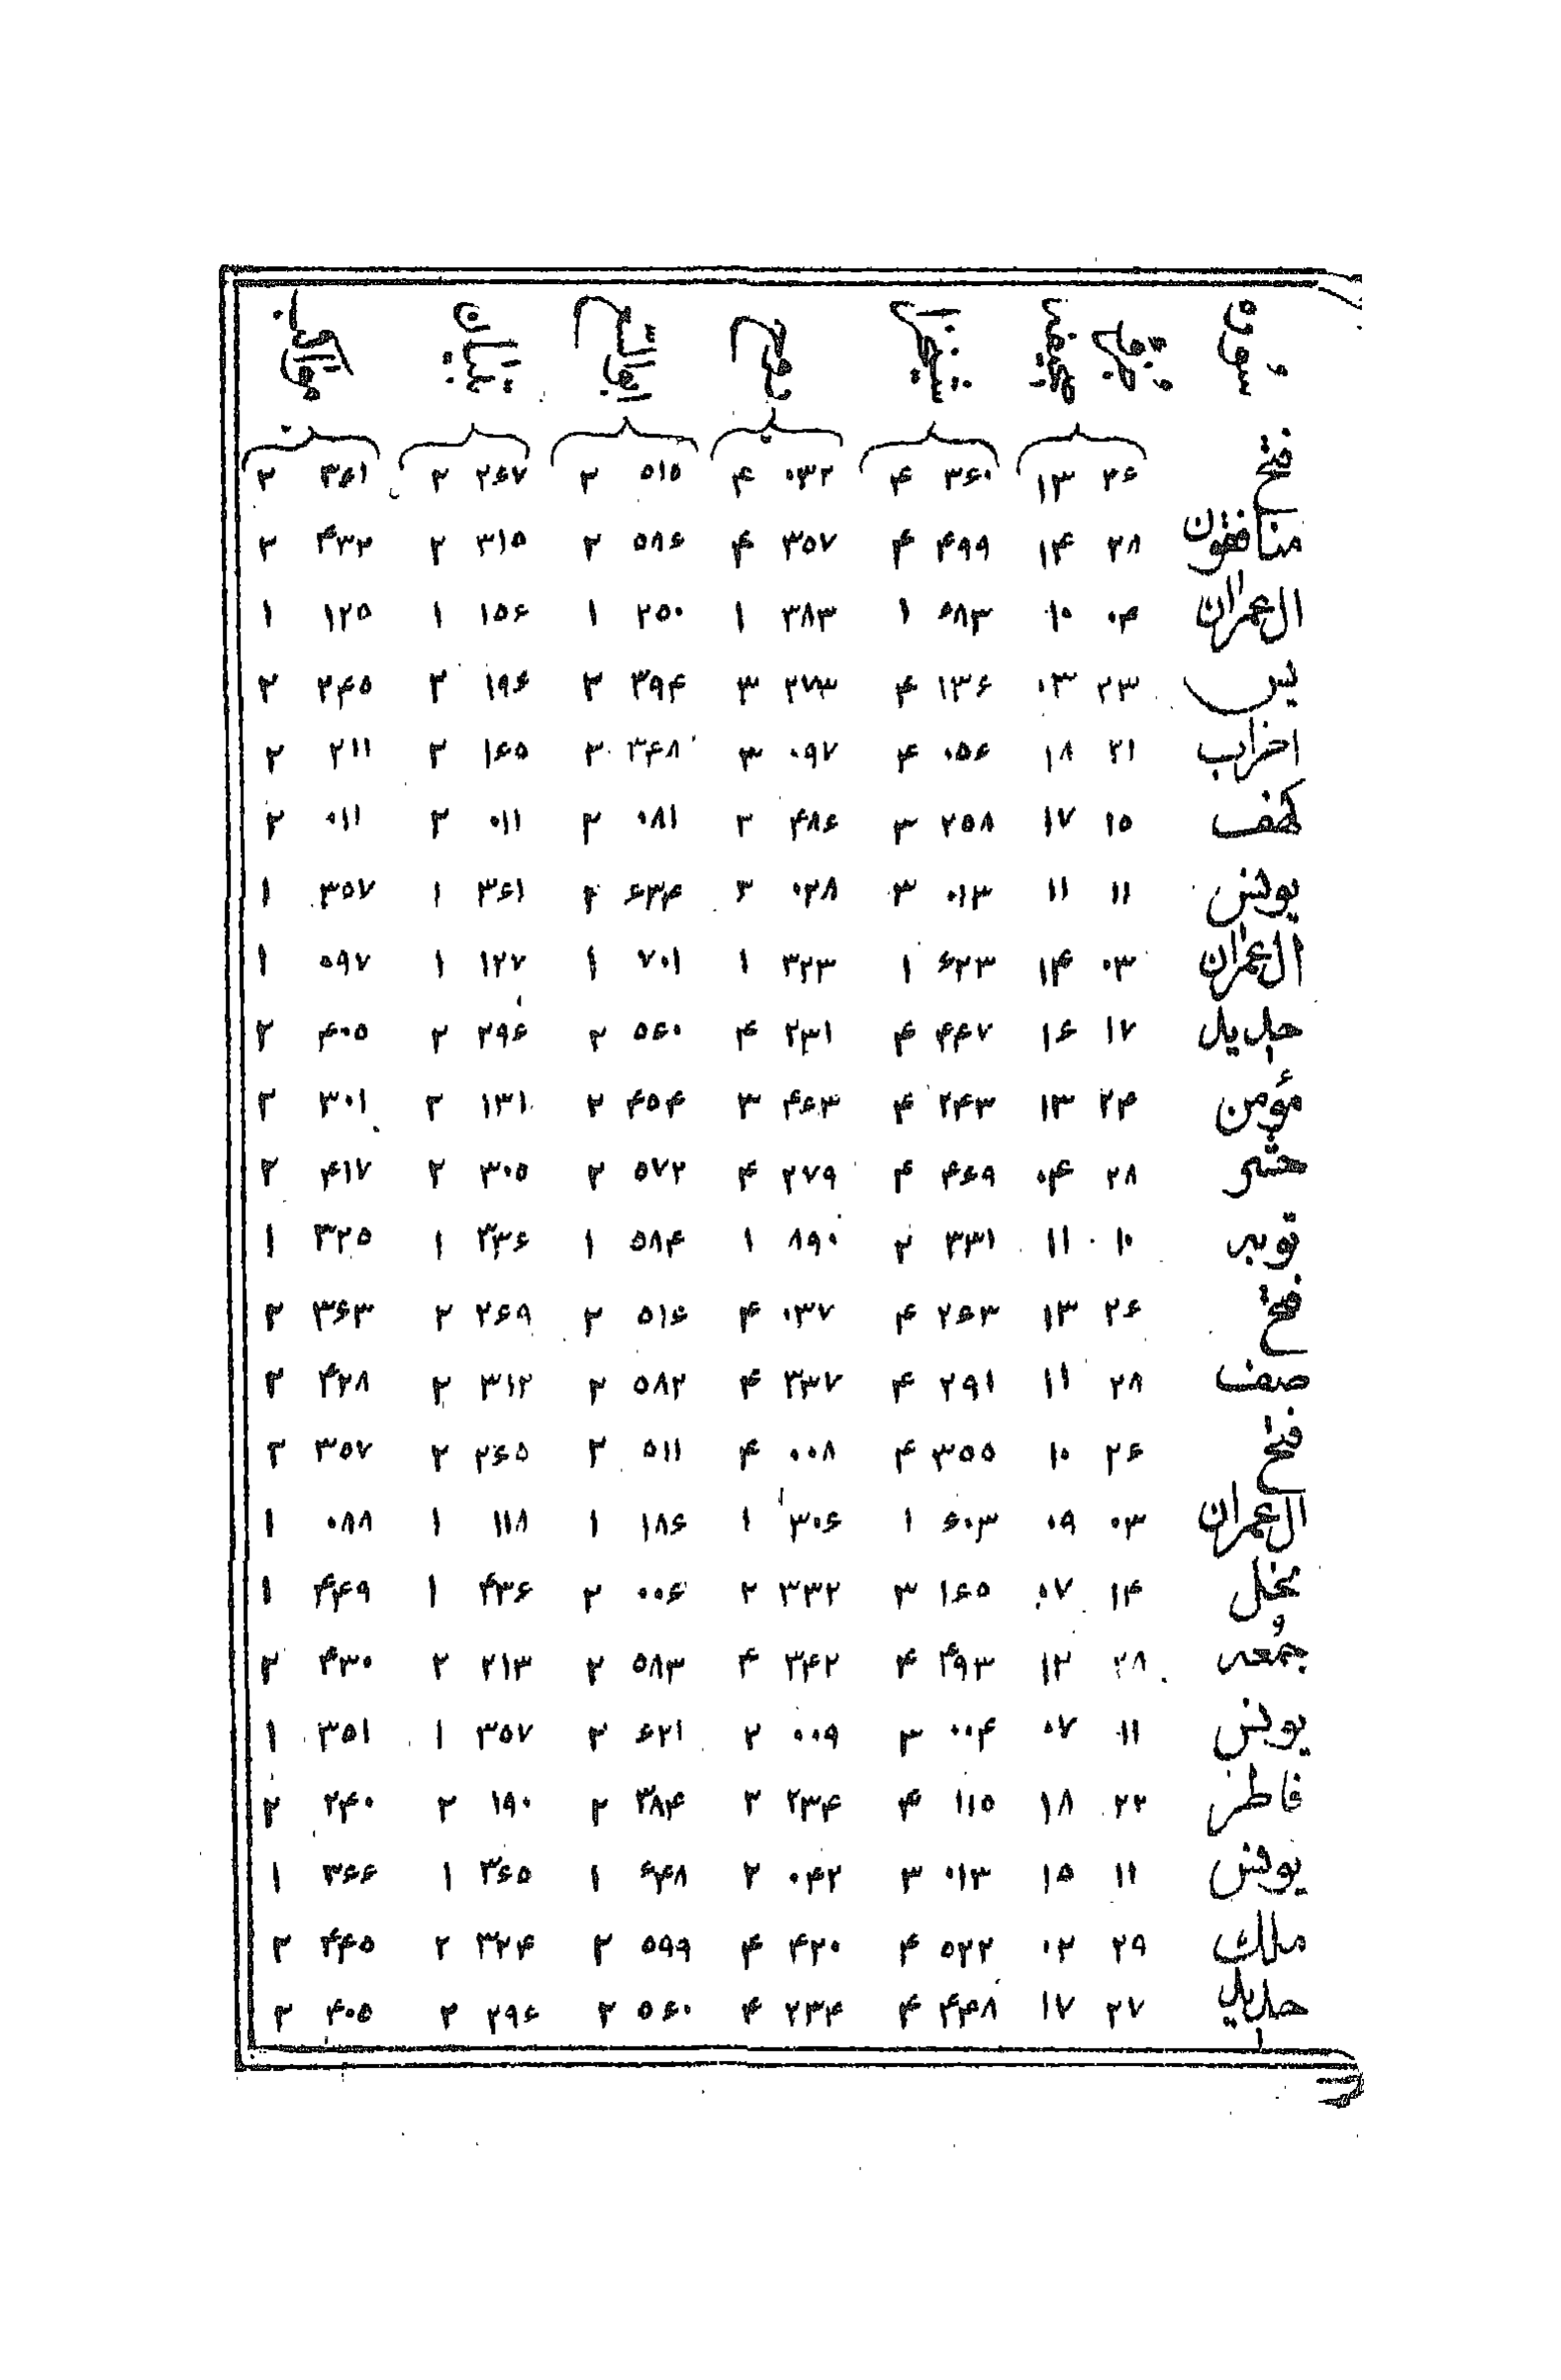 فتح ۲۶ ۱۳ ۳۶۰ ۴ ۰۳۲ ۴ ۵۱۵ ۲ ۲۶۷ ۲ ۳۶۱ ۲
منافقون ۲۸ ۱۴ ۴۹۹ ۴ ۳۵۷ ۴ ۵۸۶ ۲ ۳۱۵ ۲ ۴۳۲ ۲
ال عمران ۰۴ ۱۰ ۶۸۳ ۱ ۳۸۳ ۱ ۲۵۰ ۱ ۱۵۶ ۱ ۱۲۵ ۱
یس ۲۳ ۰۳ ۱۳۶ ۴ ۲۷۳ ۳ ۳۹۴ ۲ ۱۹۶ ۲ ۲۴۵ ۲
احزاب ۲۱ ۱۸ ۰۵۶ ۴ ۰۹۷ ۳ ۳۴۸ ۲ ۱۶۵ ۲ ۲۱۱ ۲
کهف ۱۵ ۱۷ ۲۵۸ ۳ ۴۸۶ ۲ ۰۸۱ ۲ ۰۱۱ ۲ ۰۱۱ ۲
یونس ۱۱ ۱۱ ۰۱۳ ۳ ۰۲۸ ۲ ۶۳۴ ۲ ۳۶۱ ۱ ۳۵۷ ۱
ال عمران ۰۳ ۱۴ ۶۲۳ ۱ ۳۲۳ ۱ ۷۰۱ ۱ ۱۲۷ ۱ ۵۹۷ ۱
حدید ۱۷ ۱۶ ۴۴۷ ۴ ۲۳۱ ۴ ۵۶۰ ۲ ۲۹۶ ۲ ۴۰۵ ۲
مؤمن ۲۴ ۱۳ ۲۴۳ ۴ ۴۶۳ ۳ ۴۵۴ ۲ ۱۳۱ ۲ ۳۰۱ ۲
حشر ۲۸ ۰۴ ۴۶۹ ۴ ۲۷۹ ۴ ۵۷۲ ۲ ۳۰۵ ۲ ۴۱۷ ۲
توبه ۱۰ ۱۱ ۳۳۱ ۲ ۸۹۰ ۱ ۵۸۴ ۱ ۲۳۶ ۱ ۳۲۵ ۱
فتح ۲۶ ۱۳ ۲۶۳ ۴ ۰۳۷ ۴ ۵۱۶ ۲ ۲۶۹ ۲ ۳۶۳ ۲
صف ۲۸ ۱۱ ۲۹۱ ۴ ۳۳۷ ۴ ۵۸۲ ۲ ۳۱۲ ۲ ۴۲۸ ۲
فتح ۲۶ ۱۰ ۳۵۵ ۴ ۰۰۸ ۴ ۵۱۱ ۲ ۲۶۵ ۲ ۳۵۷ ۲
ال عمران ۰۳ ۰۹ ۶۰۳ ۱ ۳۰۶ ۱ ۱۸۶ ۱ ۱۱۸ ۱ ۰۸۸ ۱
نحل ۱۴ ۰۷ ۱۶۵ ۳ ۳۳۲ ۲ ۰۰۶ ۲ ۴۳۶ ۱ ۴۴۹ ۱
جمعه ۲۸ ۱۲ ۴۹۳ ۴ ۳۴۲ ۴ ۵۸۳ ۲ ۲۱۳ ۲ ۴۳۰ ۲
یونس ۱۱ ۰۷ ۰۰۴ ۳ ۰۰۹ ۲ ۶۲۱ ۲ ۳۵۷ ۱ ۳۵۱ ۱
فاطر ۲۲ ۱۸ ۱۱۵ ۴ ۲۳۴ ۳ ۳۸۴ ۲ ۱۹۰ ۲ ۲۴۰ ۲
یونس ۱۱ ۱۵ ۰۱۳ ۳ ۰۴۲ ۲ ۶۴۸ ۱ ۳۶۵ ۱ ۳۶۶ ۱
ملک ۲۹ ۰۲ ۵۲۲ ۴ ۴۲۰ ۴ ۵۹۹ ۲ ۳۲۴ ۲ ۴۴۵ ۲
حدید ۲۷ ۱۷ ۴۴۸ ۴ ۲۳۴ ۴ ۵۶۰ ۲ ۲۹۶ ۲ ۴۰۵ ۲